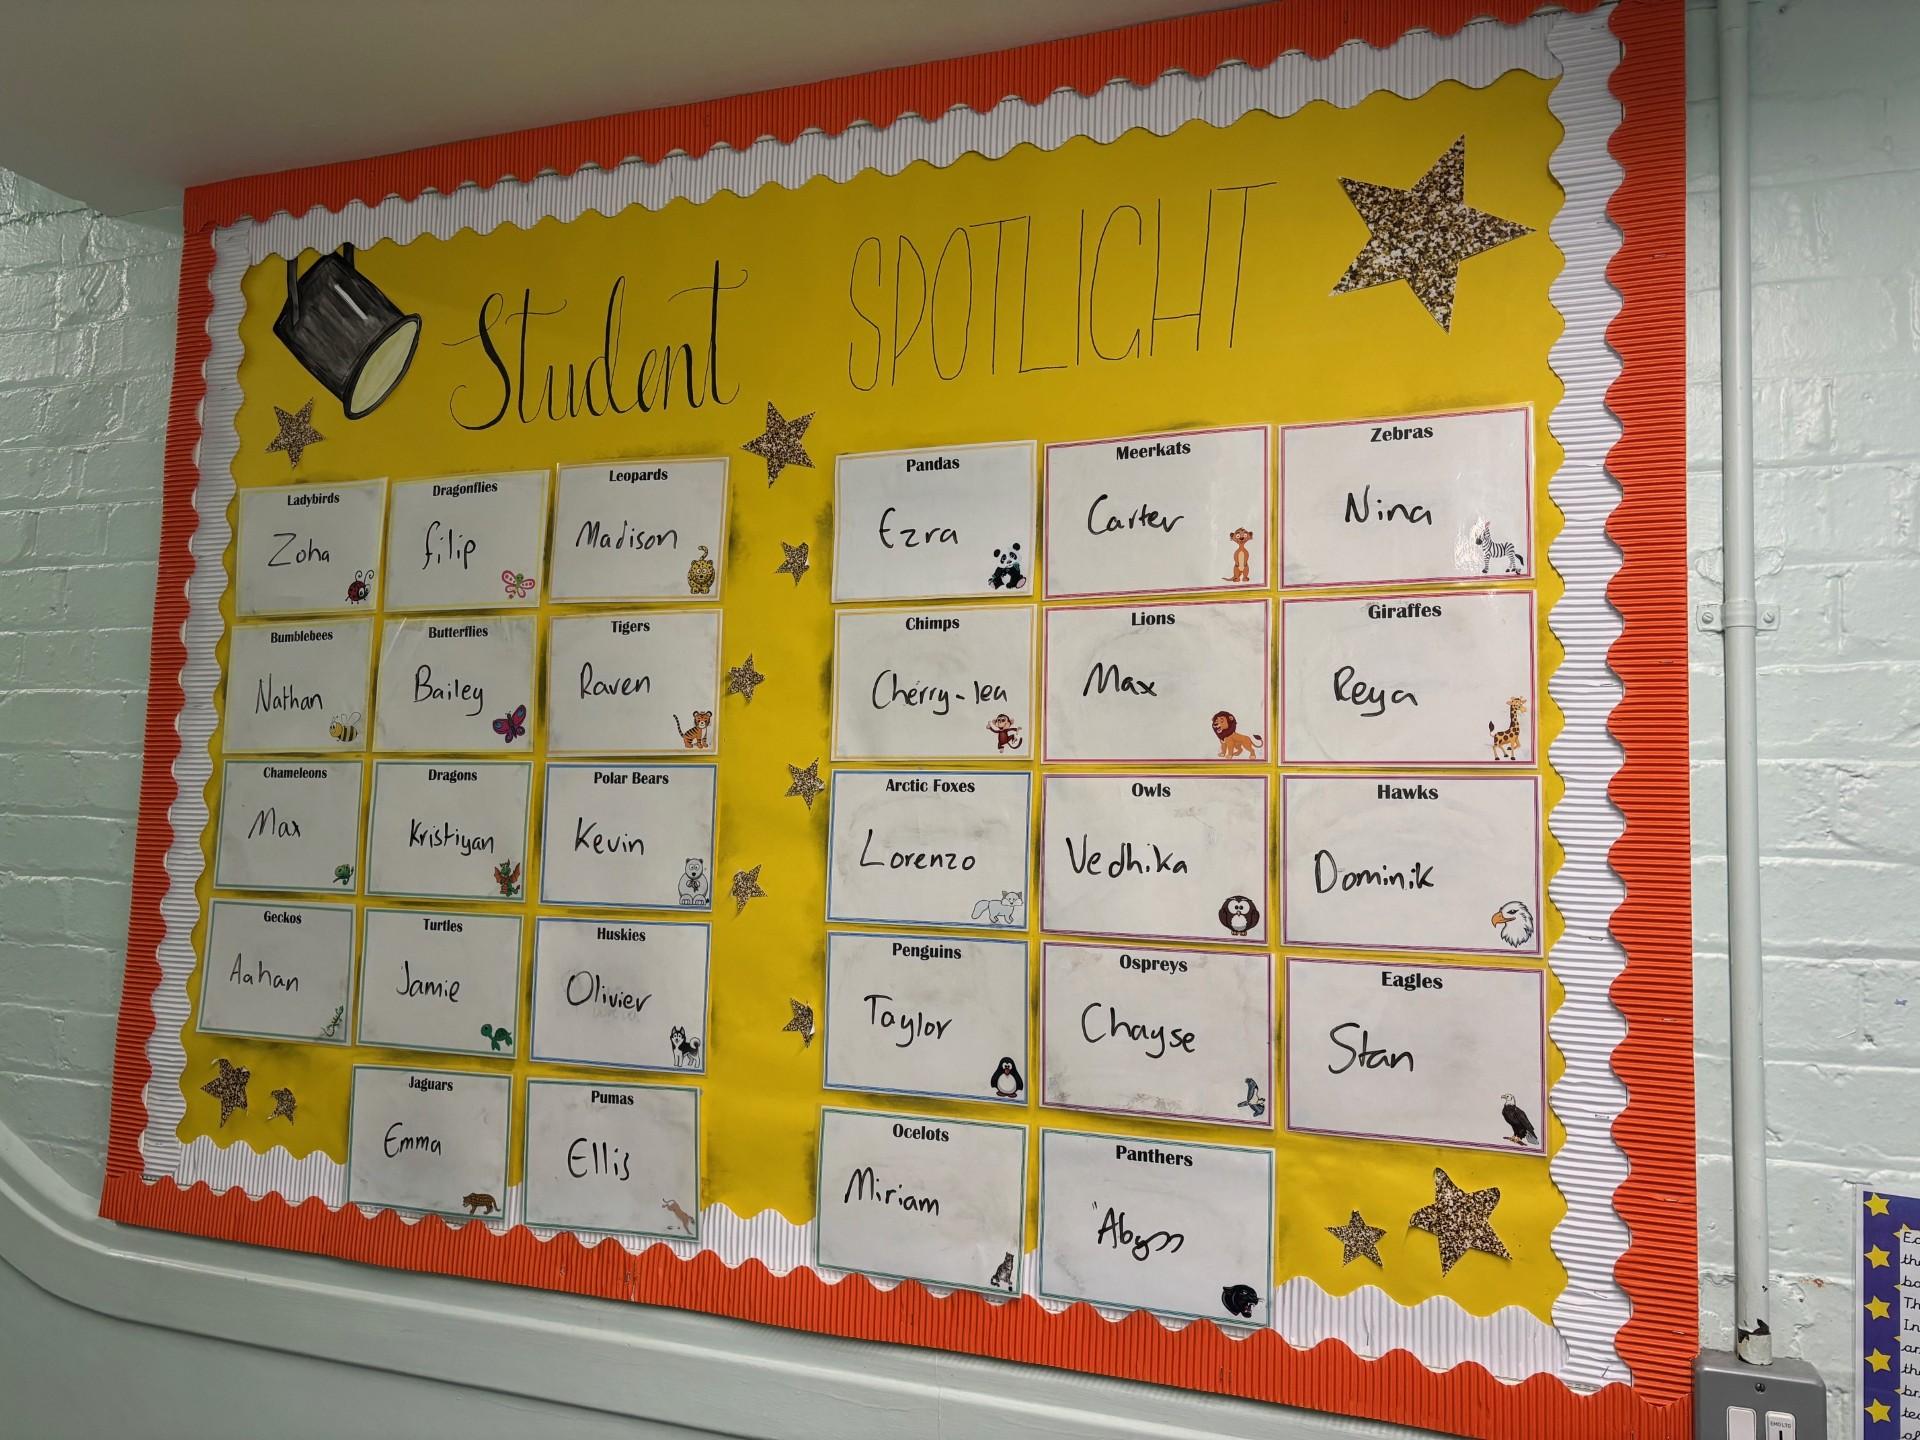 Student SPOTLIGHT
Ladybirds
Zoha
Dragonflies
filip
Leopards
Madison
Bumblebees
Nathan
Butterflies
Bailey
Tigers
Raven
Chameleons
Max
Dragons
Kristiyan
Polar Bears
Kevin
Geckos
Aahan
Turtles
Jamie
Huskies
Olivier
Jaguars
Emma
Pumas
Ellis
Pandas
Ezra
Meerkats
Carter
Zebras
Nina
Chimps
Cherry-lea
Lions
Max
Giraffes
Reya
Arctic Foxes
Lorenzo
Owls
Vedhika
Hawks
Dominik
Penguins
Taylor
Ospreys
Chayse
Eagles
Stan
Ocelots
Miriam
Panthers
Abyss